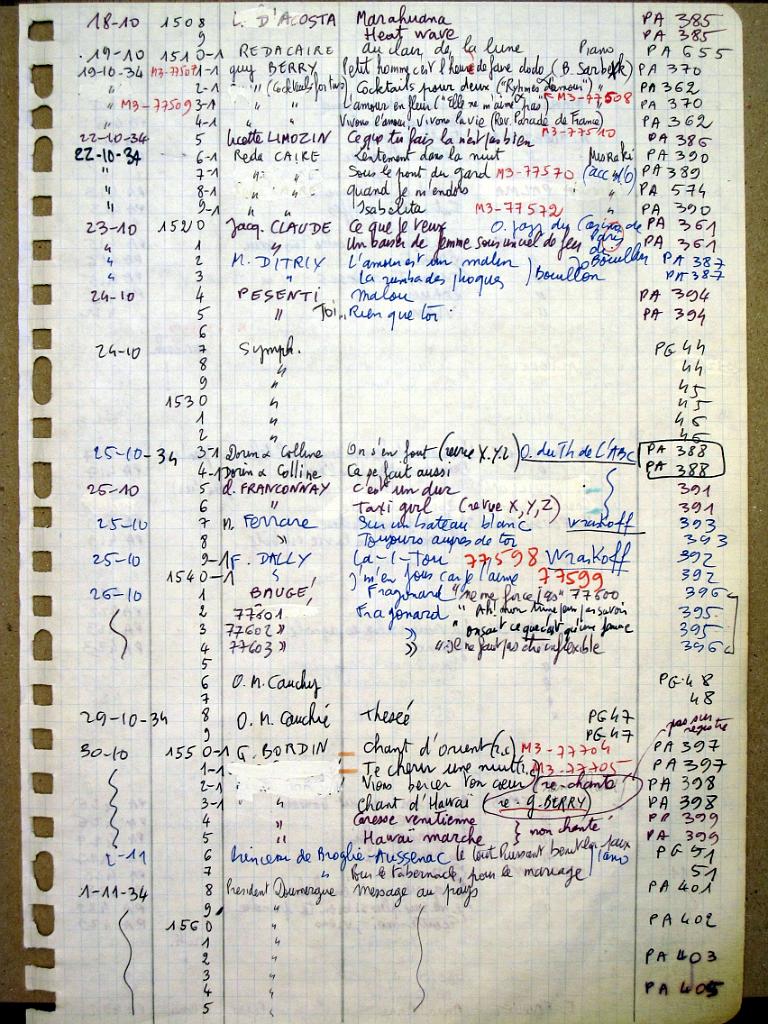 18-10 1508 L. D'ACOSTA Marahuana PA 385
9 Heat wave PA 385
19-10 1510-1 REDA CAIRE Au clair de la lune Piano PA 655
19-10-34 M3-77507 1-1 Guy BERRY Petit homme c'est l'heure de faire dodo (B. Sarbek) PA 370
" 2-1 " (Cocktails for two) Cocktails pour deux ("Rythmes d'amour") " PA 362
" M3-77509 3-1 L'amour en fleur ("Elle ne m'aime pas") M3-77508 PA 370
" 4-1 " " Vivons l'amour, vivons la vie (Rev. Parade de France) PA 362
22-10-34 5 Lucette LIMOZIN Ce que tu fais là n'est pas bien M3-77510 PA 386
22-10-34 6-1 Reda CAIRE Lentement dans la nuit Misraki PA 390
" 7-1 " " Sous le pont du gard M3-77570 (acc. " ) PA 389
" 8-1 " " quand je m'endors " PA 574
" 9-1 " Isabelita M3-77572 " PA 390
23-10 1520 Jacq. CLAUDE Ce que je veux O. jazz du Casino de Paris PA 361
" 1 " Un baiser de femme sous un ciel de feu PA 361
" 2 M. DITRIX L'amour est un malin ) Jo Bouillon PA 387
" 3 " La rumba des phoques ) Bouillon PA 387
24-10 4 PESENTI Malou PA 394
5 " Toi.. Rien que toi PA 394
6
24-10 7 Symph. PG 44
8 " 44
9 " 45
1530 " 45
1 " 46
2 " 46
25-10-34 3-1 Dorin & Colline On s'en fout (revue X.Y.Z) O. du Th de L'ABC PA 388
4-1 Dorin & Colline Ca se fait aussi PA 388
25-10 5 d. FRANCONNAY C'est un dur 391
6 " Taxi girl (revue X, Y, Z) 391
25-10 7 M. Ferrare Sur un bateau blanc Wraskoff 393
8 " Toujours auprès de toi 393
25-10 9-1 F. DALLY Ça-i-Tou 77598 Wraskoff 392
1540-1 " J'm'en fous car je l'aime 77599 392
26-10 1 BAUGÉ Fragonard "Ne me force pas" 77600 396
2 77601 Fragonard " 395
3 77602 " " " on sait ce que c'est qu'une femme 395
4 77603 " " " Je ne fait pas être inflexible 396
5
6 O. M. Cauchy PG 48
7 48
29-10-34 8 O. M. Cauchié Theseé PG 47
9 PG 47 pas sur registre
30-10 1550-1 G. BORDIN = Chant d'orient (r.c) M3-77704 PA 397
1-1 = Te chérir une nuit M3-77705 PA 397
2-1 Viens bercer ton cœur (re-chanté PA 398
3-1 " Chant d'Hawaï (re - G. BERRY) PA 398
4 " Caresse venitienne } non chanté PA 399
5 " Hawaï marche PA 399
2-11 6 Princesse de Broglie-Aussenac le Tout Puissant piano PG 51
7 " Pour le tabernacle, pour le mariage 51
1-11-34 8 President Doumergue message au pays PA 401
9 "
1560 " PA 402
1 "
2 " PA 403
3 "
4 " PA 405
5 "